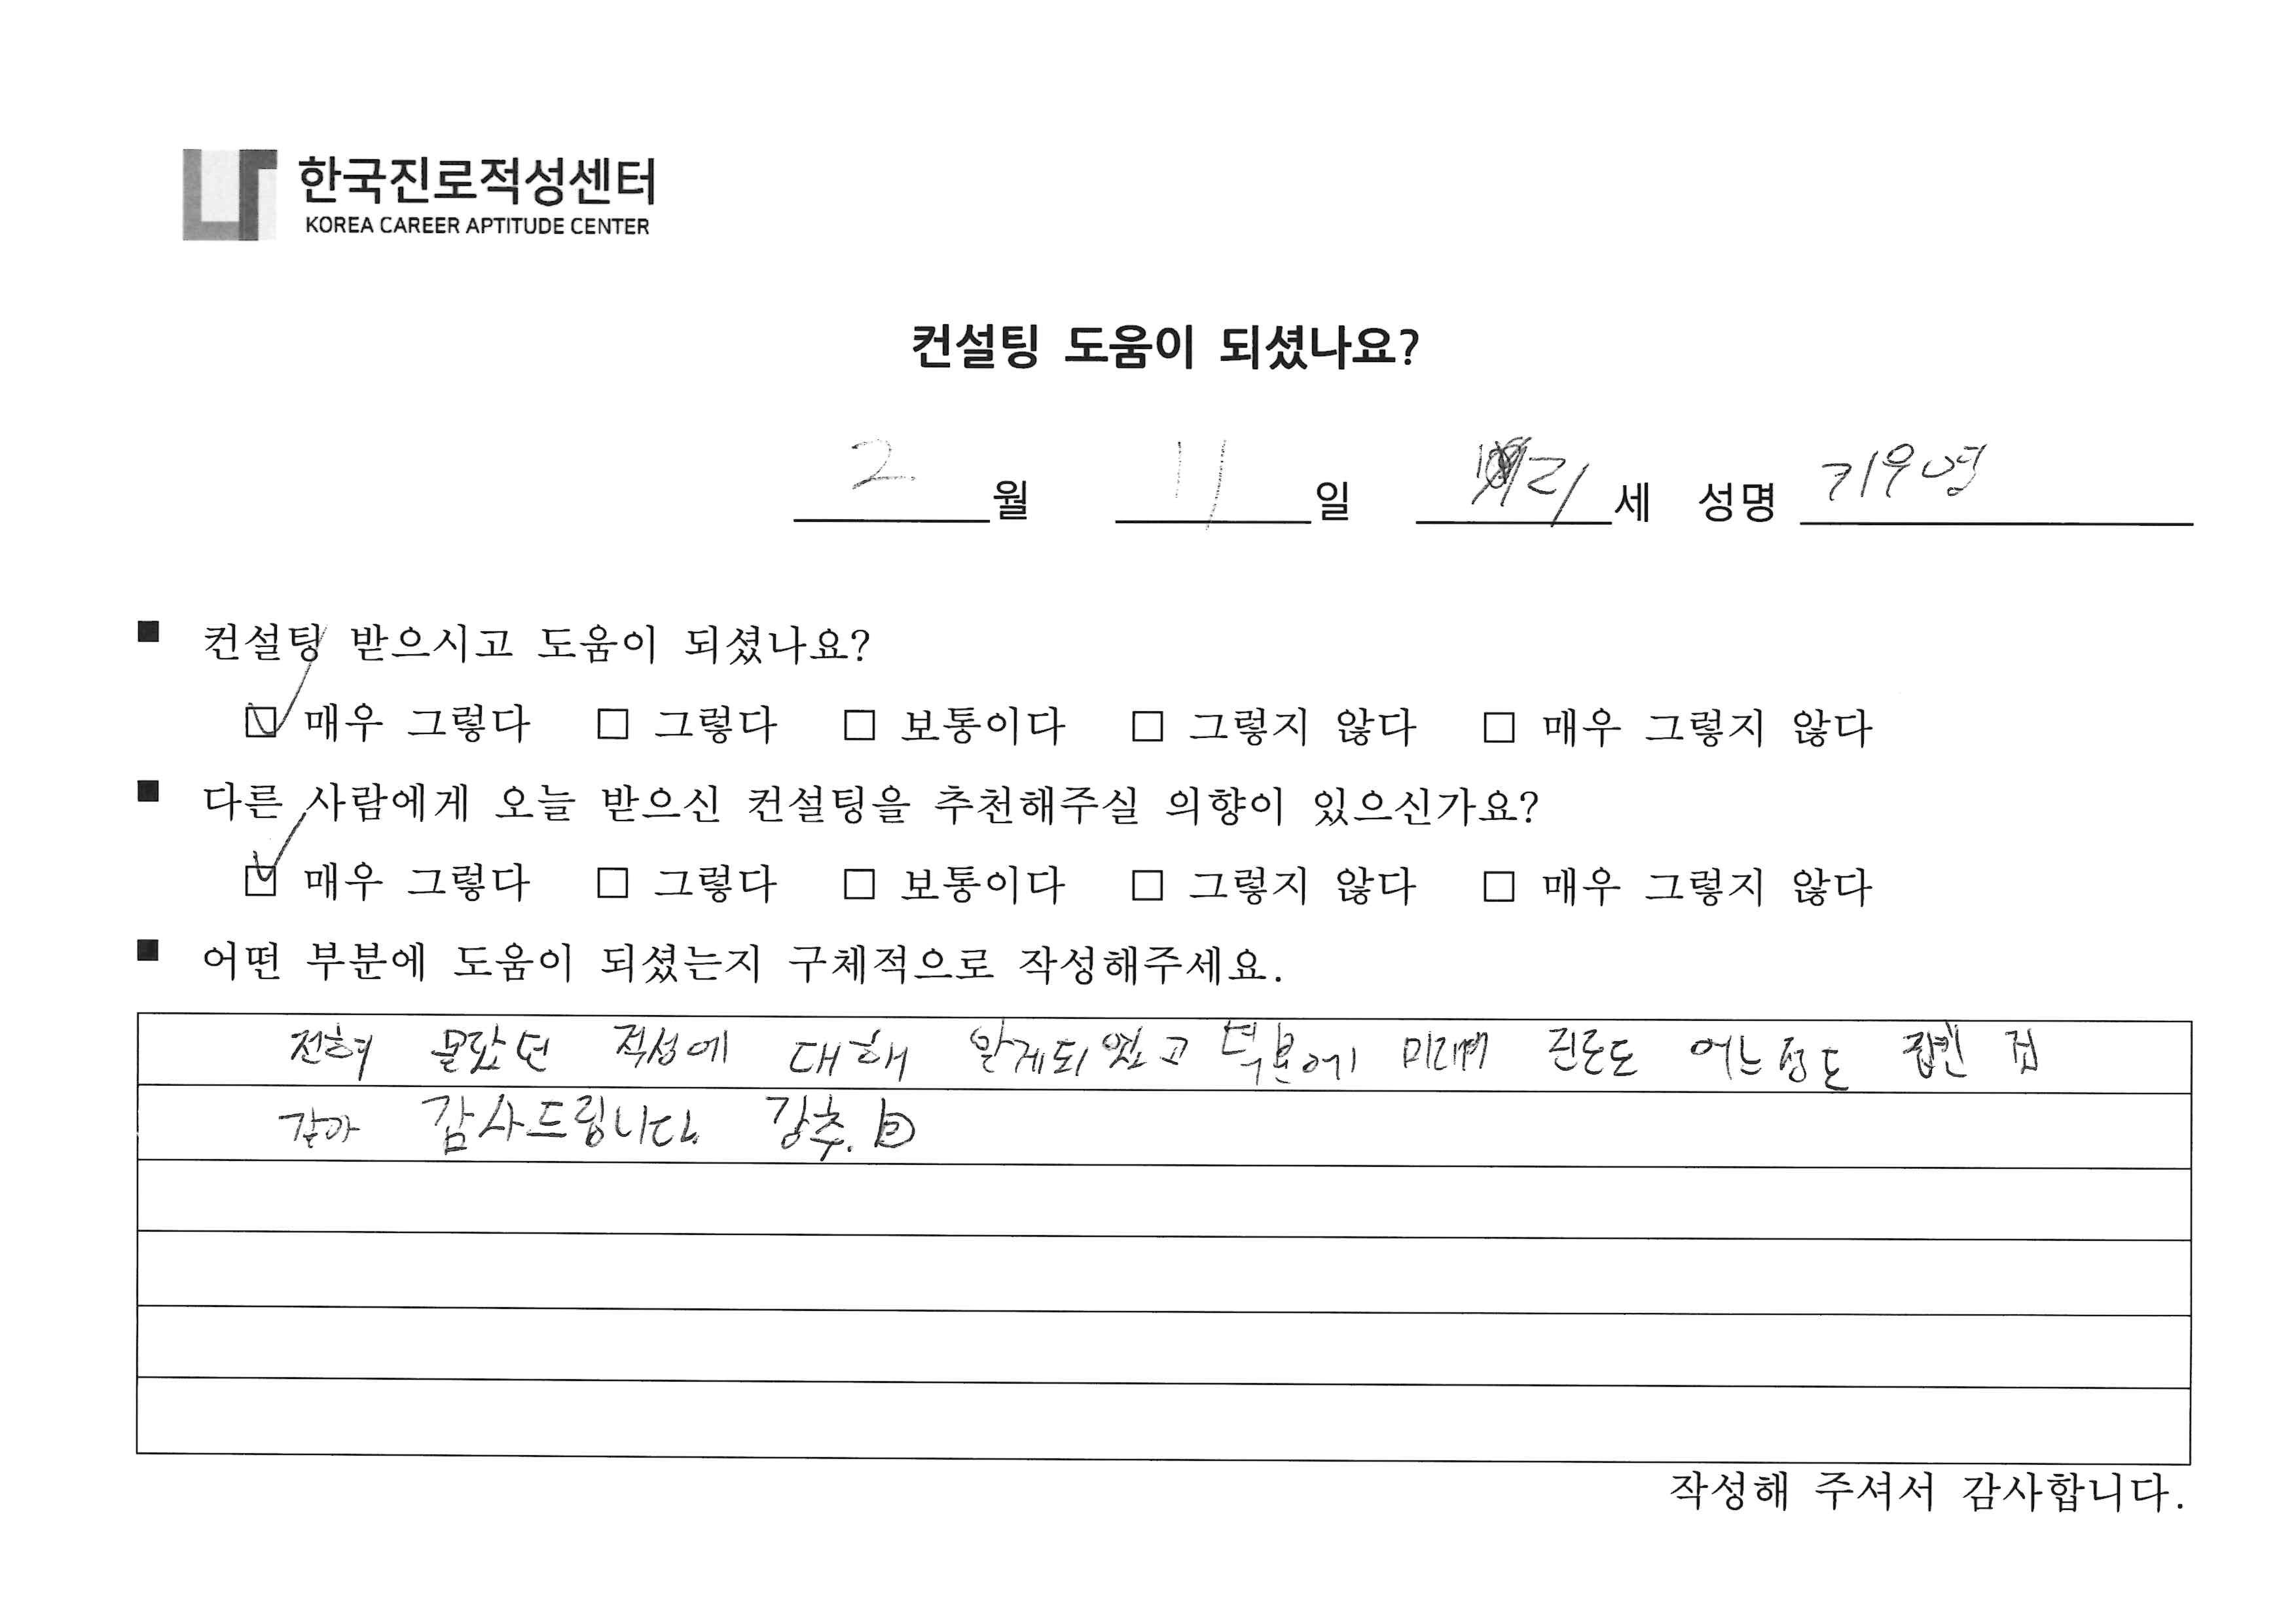 한국진로적성센터
KOREA CAREER APTITUDE CENTER
컨설팅 도움이 되셨나요?
2월 11일 21세 성명 기우영
■ 컨설팅 받으시고 도움이 되셨나요?
☑ 매우 그렇다 □ 그렇다 □ 보통이다 □ 그렇지 않다 □ 매우 그렇지 않다
■ 다른 사람에게 오늘 받으신 컨설팅을 추천해주실 의향이 있으신가요?
☑ 매우 그렇다 □ 그렇다 □ 보통이다 □ 그렇지 않다 □ 매우 그렇지 않다
■ 어떤 부분에 도움이 되셨는지 구체적으로 작성해주세요.
전혀 몰랐던 적성에 대해 알게되었고 덕분에 미래 진로도 어느정도
같아 감사드립니다. 강추.
작성해 주셔서 감사합니다.